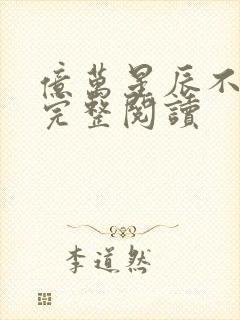 億萬星辰不
完整閱讀
李道然